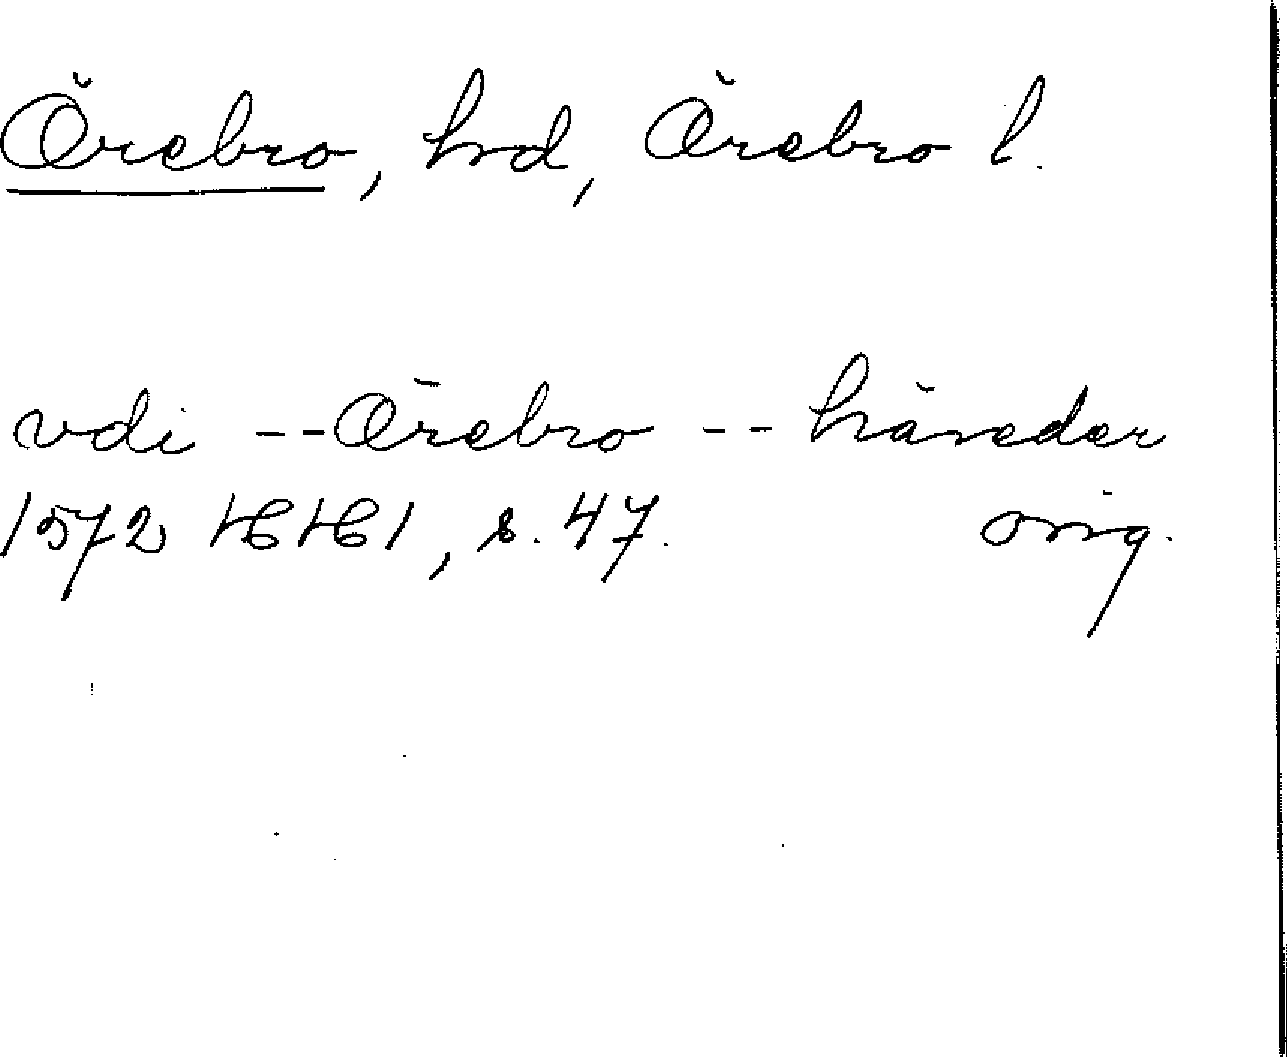 Örebro, hrd, Örebro l.
vdi -- Örebro -- häreder
1572 HH1, s. 47. orig.